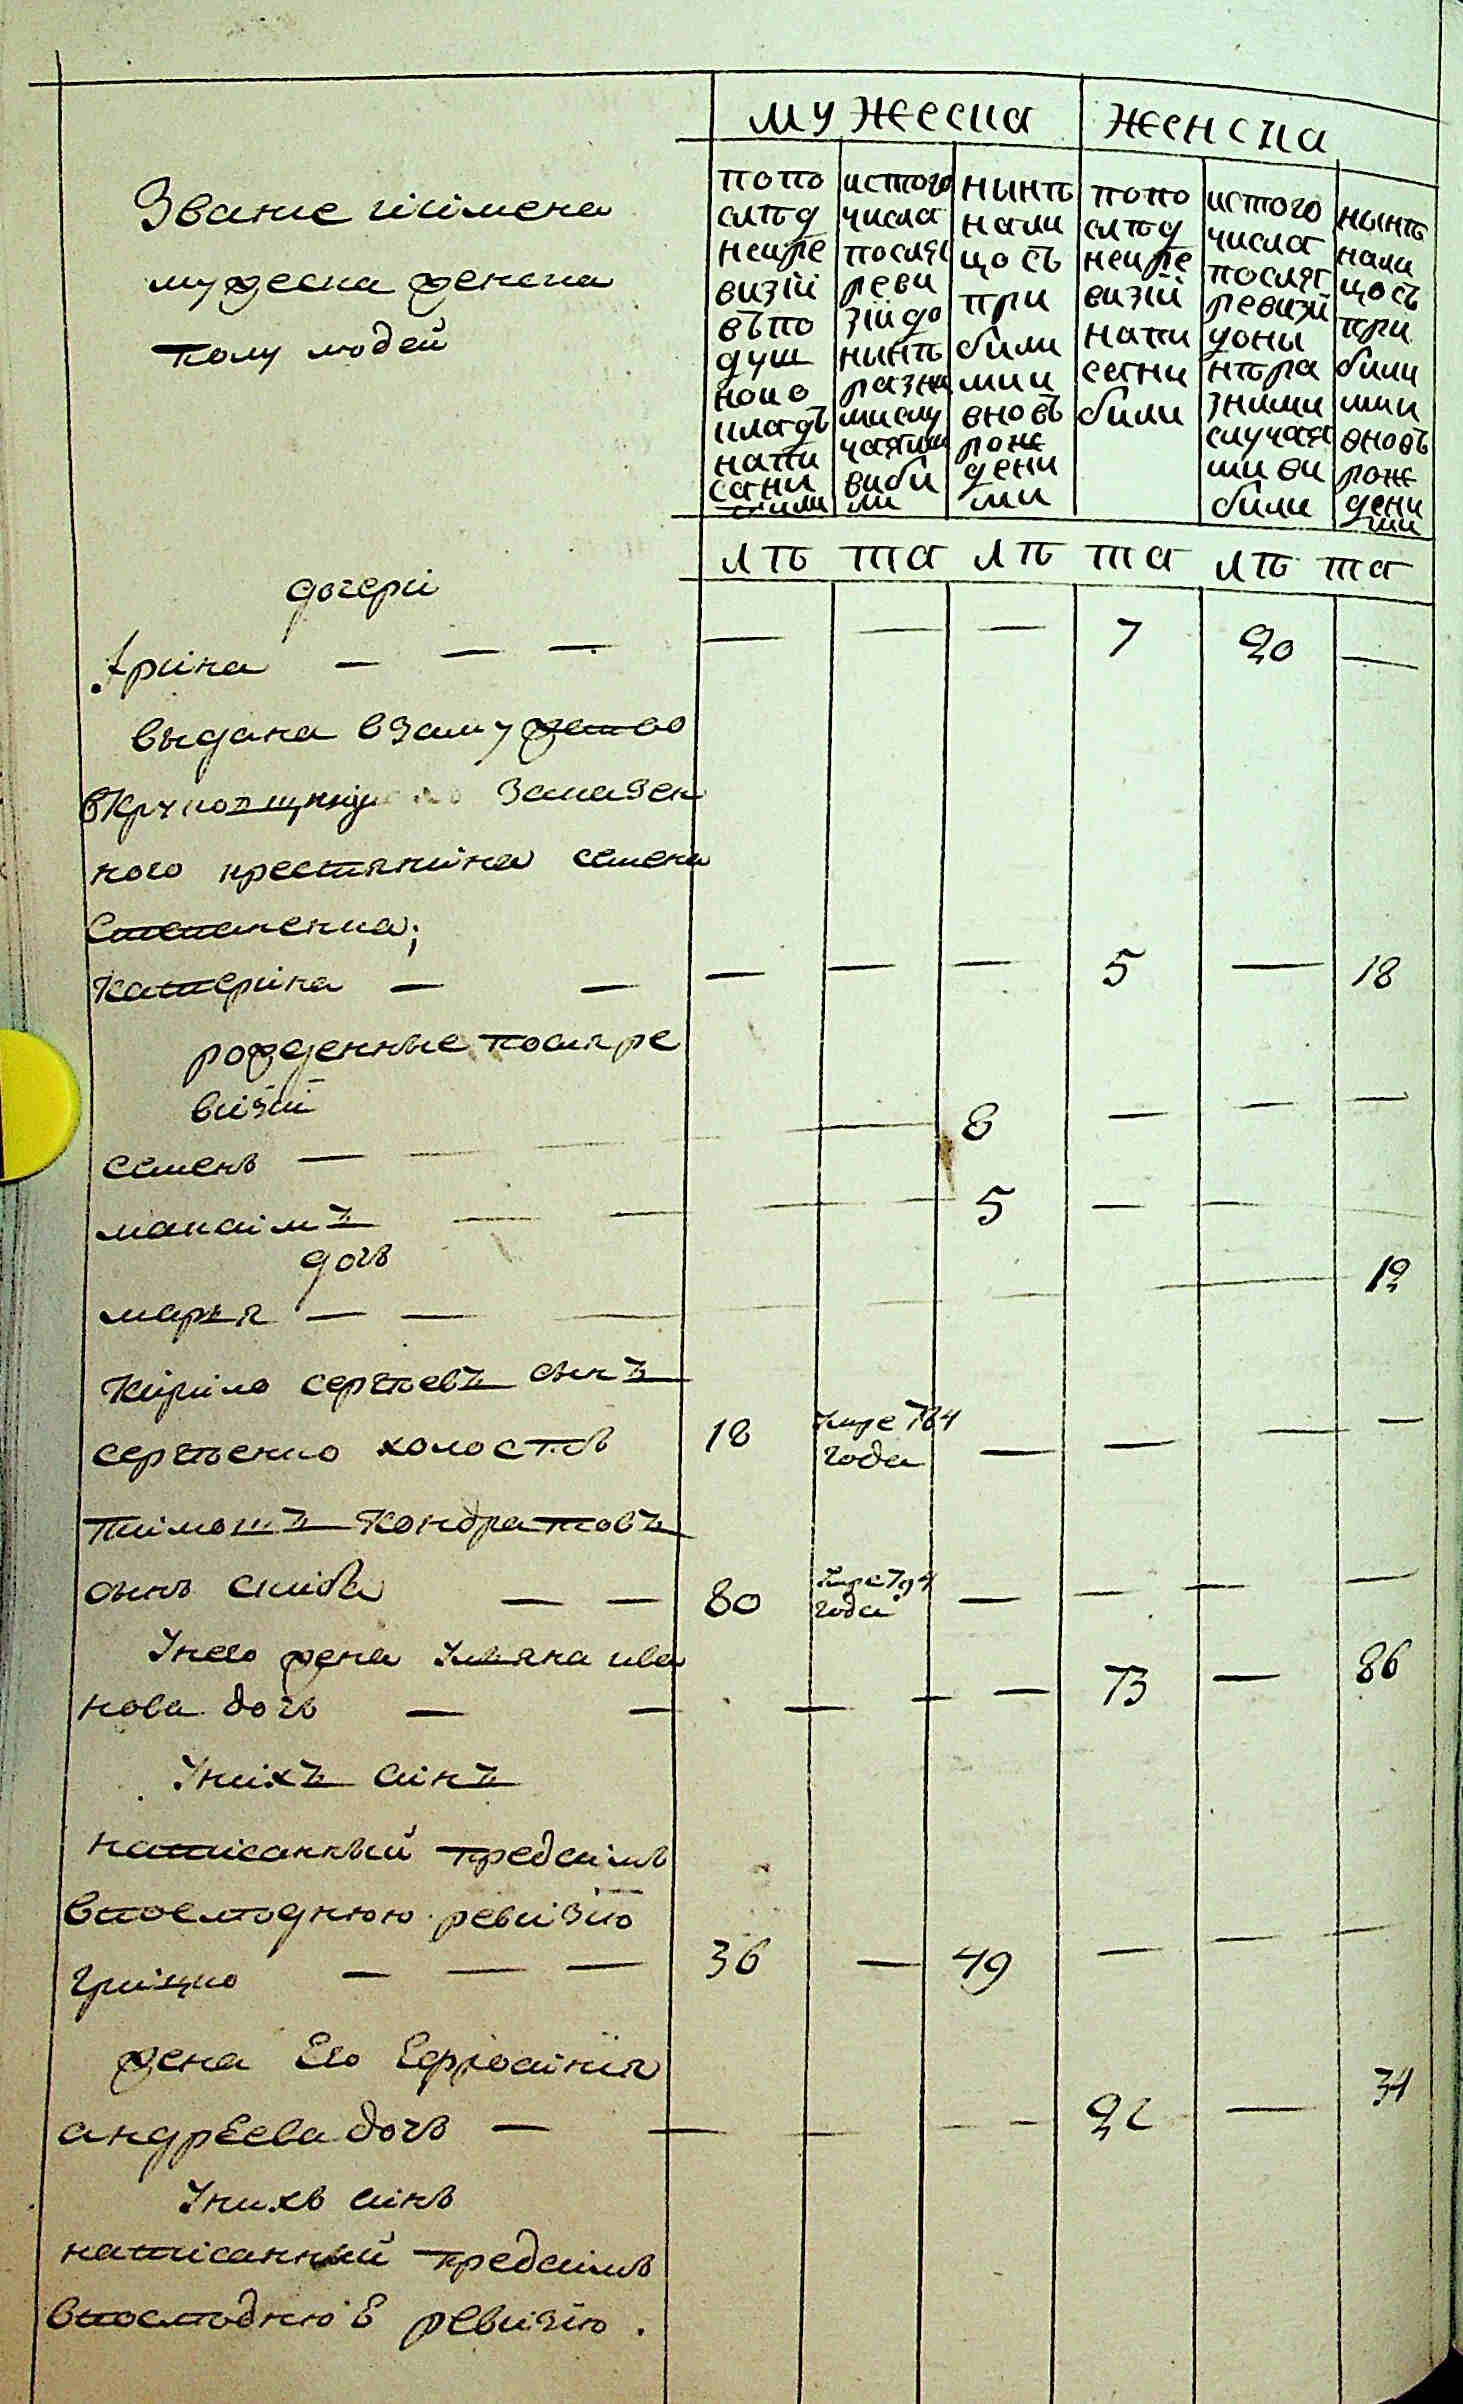 мужеска женска
Звание иімена
мужеска женска
полу людей
попо
слѣд
неире
визіи
въпо
душ
ноио
кладъ
напи
сани
били
истого
числа
посля
реви
зіидо
нынѣ
разни
мислу
чаями
виби
ли
нынѣ
нали
цо съ
при
били
ми и
вновъ
рож
дени
ми
попо
слѣд
неире
визіи
напи
сани
били
истого
числа
посля
ревизіи
доны
нѣра
зними
случая
ми ви
били
нынѣ
нали
цосъ
при
били
ми и
вновъ
рож
дени
ми
лѣ та лѣ та лѣ та
дочери
Арина — — — — — — 7 20 —
выдана взамужство
вкруповщинну Замазен
ного крестянина семена
Степаненка;
Катерина — — — — — 5 — 18
рожденные посляре
визіи
семенъ — — — — 8 — — —
максимъ — — — — 5 — — —
дочъ
марья — — — — — — — 12
Кирило сергѣевъ сынъ
сергѣенко холостъ 18 умре 784 года — — — —
тимошъ Кондратовъ
сынъ скиба — — 80 умре 794 года — — — —
Унего жена Уляна ива
нова дочъ — — — — — 73 — 86
Унихъ синъ
написанный предсимъ
впослѣднюю ревизію
грицко — — — 36 — 49 — — —
жена Его Ефросинія
андрЕева дочъ — — — — — 22 — 34
Унихъ синъ
написанный предсимъ
впослѣднюЕ ревизію.